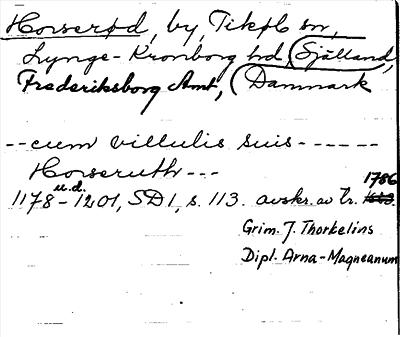 Horserød, by, Tikøb sn,
Lynge-Kronborg hd, (Själland,
Frederiksborg Amt, (Danmark
--cum villulis suis------
Horseruth---
u.d.
1178-1201, SD1, s. 113. avskr. av tr. 1786
Grim. J. Thorkelins
Dipl. Arna-Magneanum